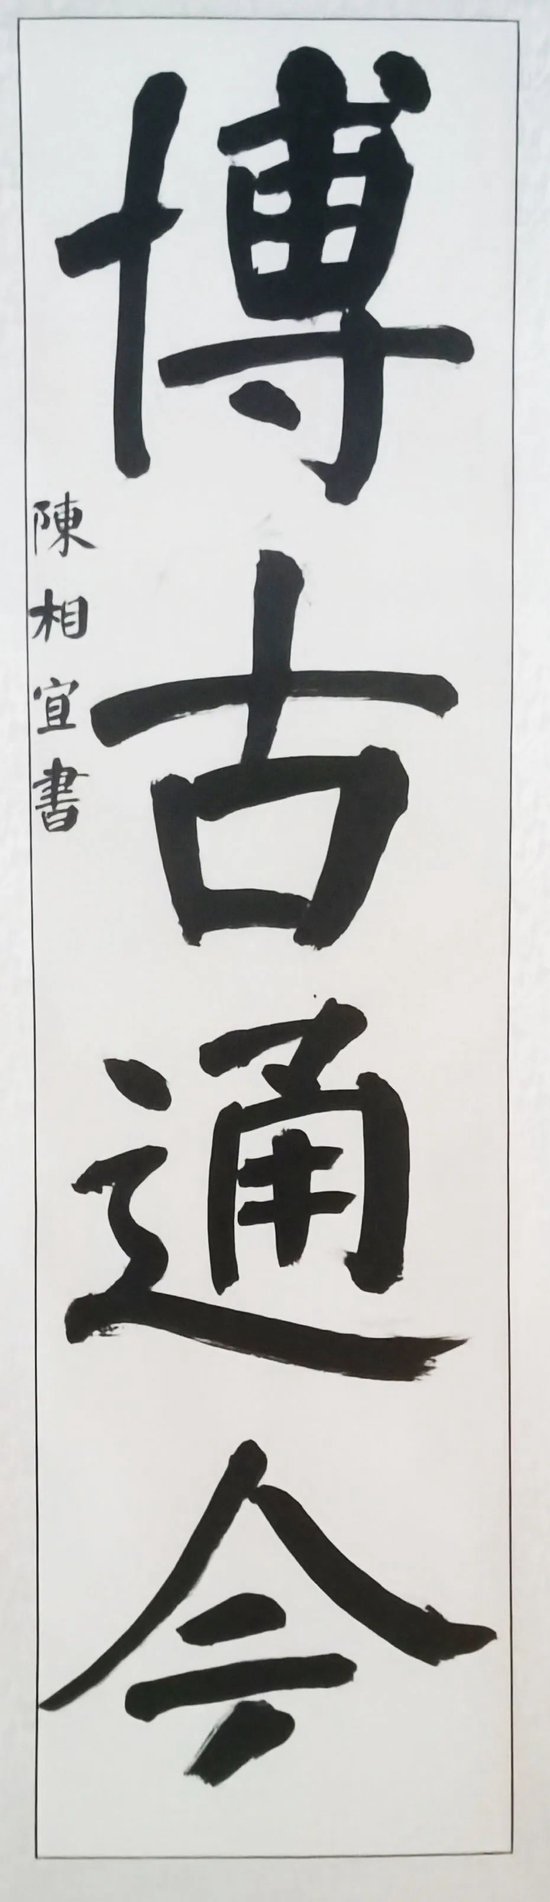 博古通今
陳相宜書